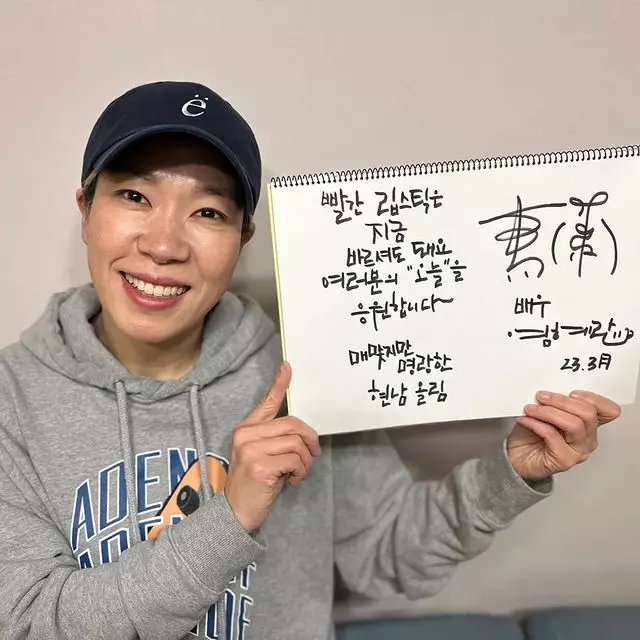 ë
빨간 립스틱은
지금
바르셔도 돼요
여러분의 "오늘"을
응원합니다~
매맞지만
명랑한
현남 올림
배우
염혜란
23.3月